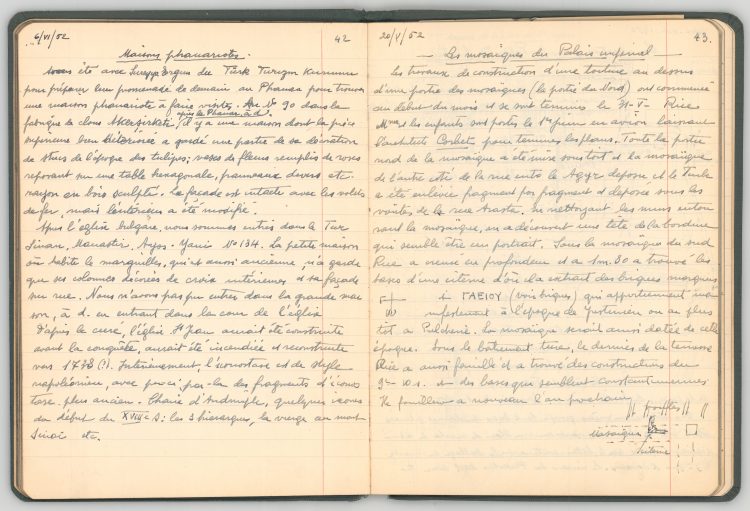 6/VI/52
42
Maisons phanariotes.
été avec Sureyya Ergun du Türk Turizm Kurumu
pour préparer leur promenade de demain au Phanar pour trouver
une maison phanariote à faire visiter. Au No 90 dans la
après le Phanar à d.
fabrique de clous Akserşirketi, il y a une maison dont la pièce
supérieure bien détériorée a gardé une partie de sa décoration
de stucs de l'époque des tulipes; vases de fleurs remplis de roses
reposant sur une table hexagonale, panneaux divers etc.
en bois sculpté. La façade est intacte avec les volets
de fer, mais l'intérieur a été modifié.
Après l'église bulgare, nous sommes entrés dans le Tur
Sinan. Manastir. Ayos Yanis No 134. La petite maison
où habite le marguiller, qui est aussi ancienne, n'a gardé
que ses colonnes décorées de croix intérieures et sa façade
sur rue. Nous n'avons pas pu entrer dans la grande mai
son, à d. en entrant dans la cour de l'église
D'après le curé, l'église St Jean aurait été construite
avant la conquête, aurait été incendiée et reconstruite
vers 1738 (?). Intérieurement l'iconostase est de style
napoléonien, avec par-ci par-là des fragments d'icono
stase plus ancien. Chaire d'Andrinople, quelques icones
du début du XVIIIe s: les 3 hiérarques, la vierge au mont
Sinaï etc.
20/V/52
43.
— Les mosaïques du Palais impérial —
Les travaux de construction d'une toiture au dessus
d'une partie des mosaïques (la partie du Nord) ont commencé
au début du mois et se sont terminés le 31-V- Rice
Mme et les enfants sont partis le 1er juin en avion laissant
l'architecte Corbett pour terminer les plans. Toute la partie
nord de la mosaïque a été mise sous toit et la mosaïque
de l'autre côté de la rue entre le et le Turbe
a été enlevée fragment par fragment et déposée sous les
voûtes de la rue Arasta. En nettoyant les murs entou
rant la mosaïque, on a découvert une tête de la bordure
qui semble être un portrait. Sous la mosaïque du sud
Rice a creusé en profondeur et à 5m. 30 a trouvé les
bases d'une citerne d'où il a extrait des briques marquées
ΓΑΕΙΟΥ (voir briques) qui appartiennent mani
festement à l'époque de Justinien ou au plus
tôt à Pulchérie. La mosaïque serait ainsi datée de cette
époque. Sous le bâtiment turc, le dernier de la terrasse
Rice a aussi fouillé et a trouvé des constructions du
9e- 10 s. et des bases qui semblent constantiniennes
Il fouillera à nouveau l'an prochain
fouilles
mosaïque
citerne